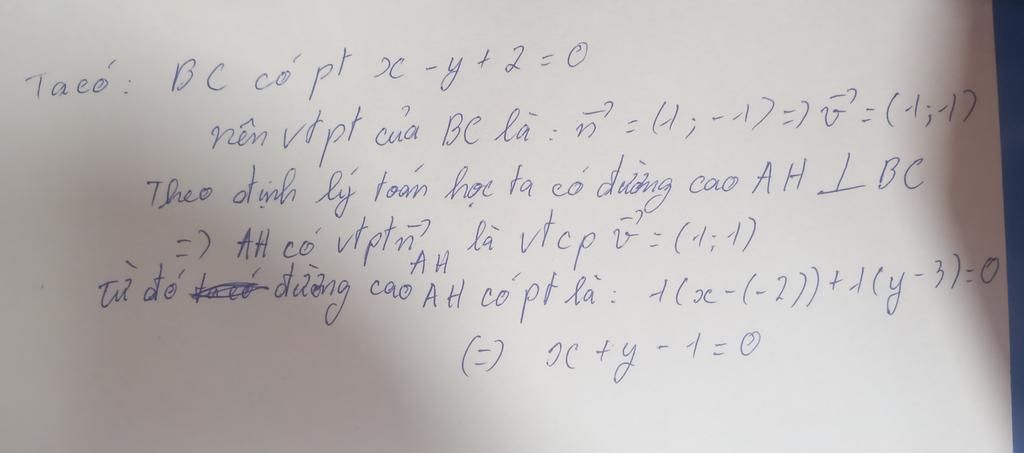 Ta có: BC có pt x - y + 2 = 0
nên vtpt của BC là: n⃗ = (1; -1) => v⃗ = (1; 1)
Theo định lý toán học ta có đường cao AH ⊥ BC
=> AH có vtpt n⃗_AH là vtcp v⃗ = (1; 1)
từ đó đường cao AH có pt là: 1(x-(-2)) + 1(y-3) = 0
(=) x + y - 1 = 0